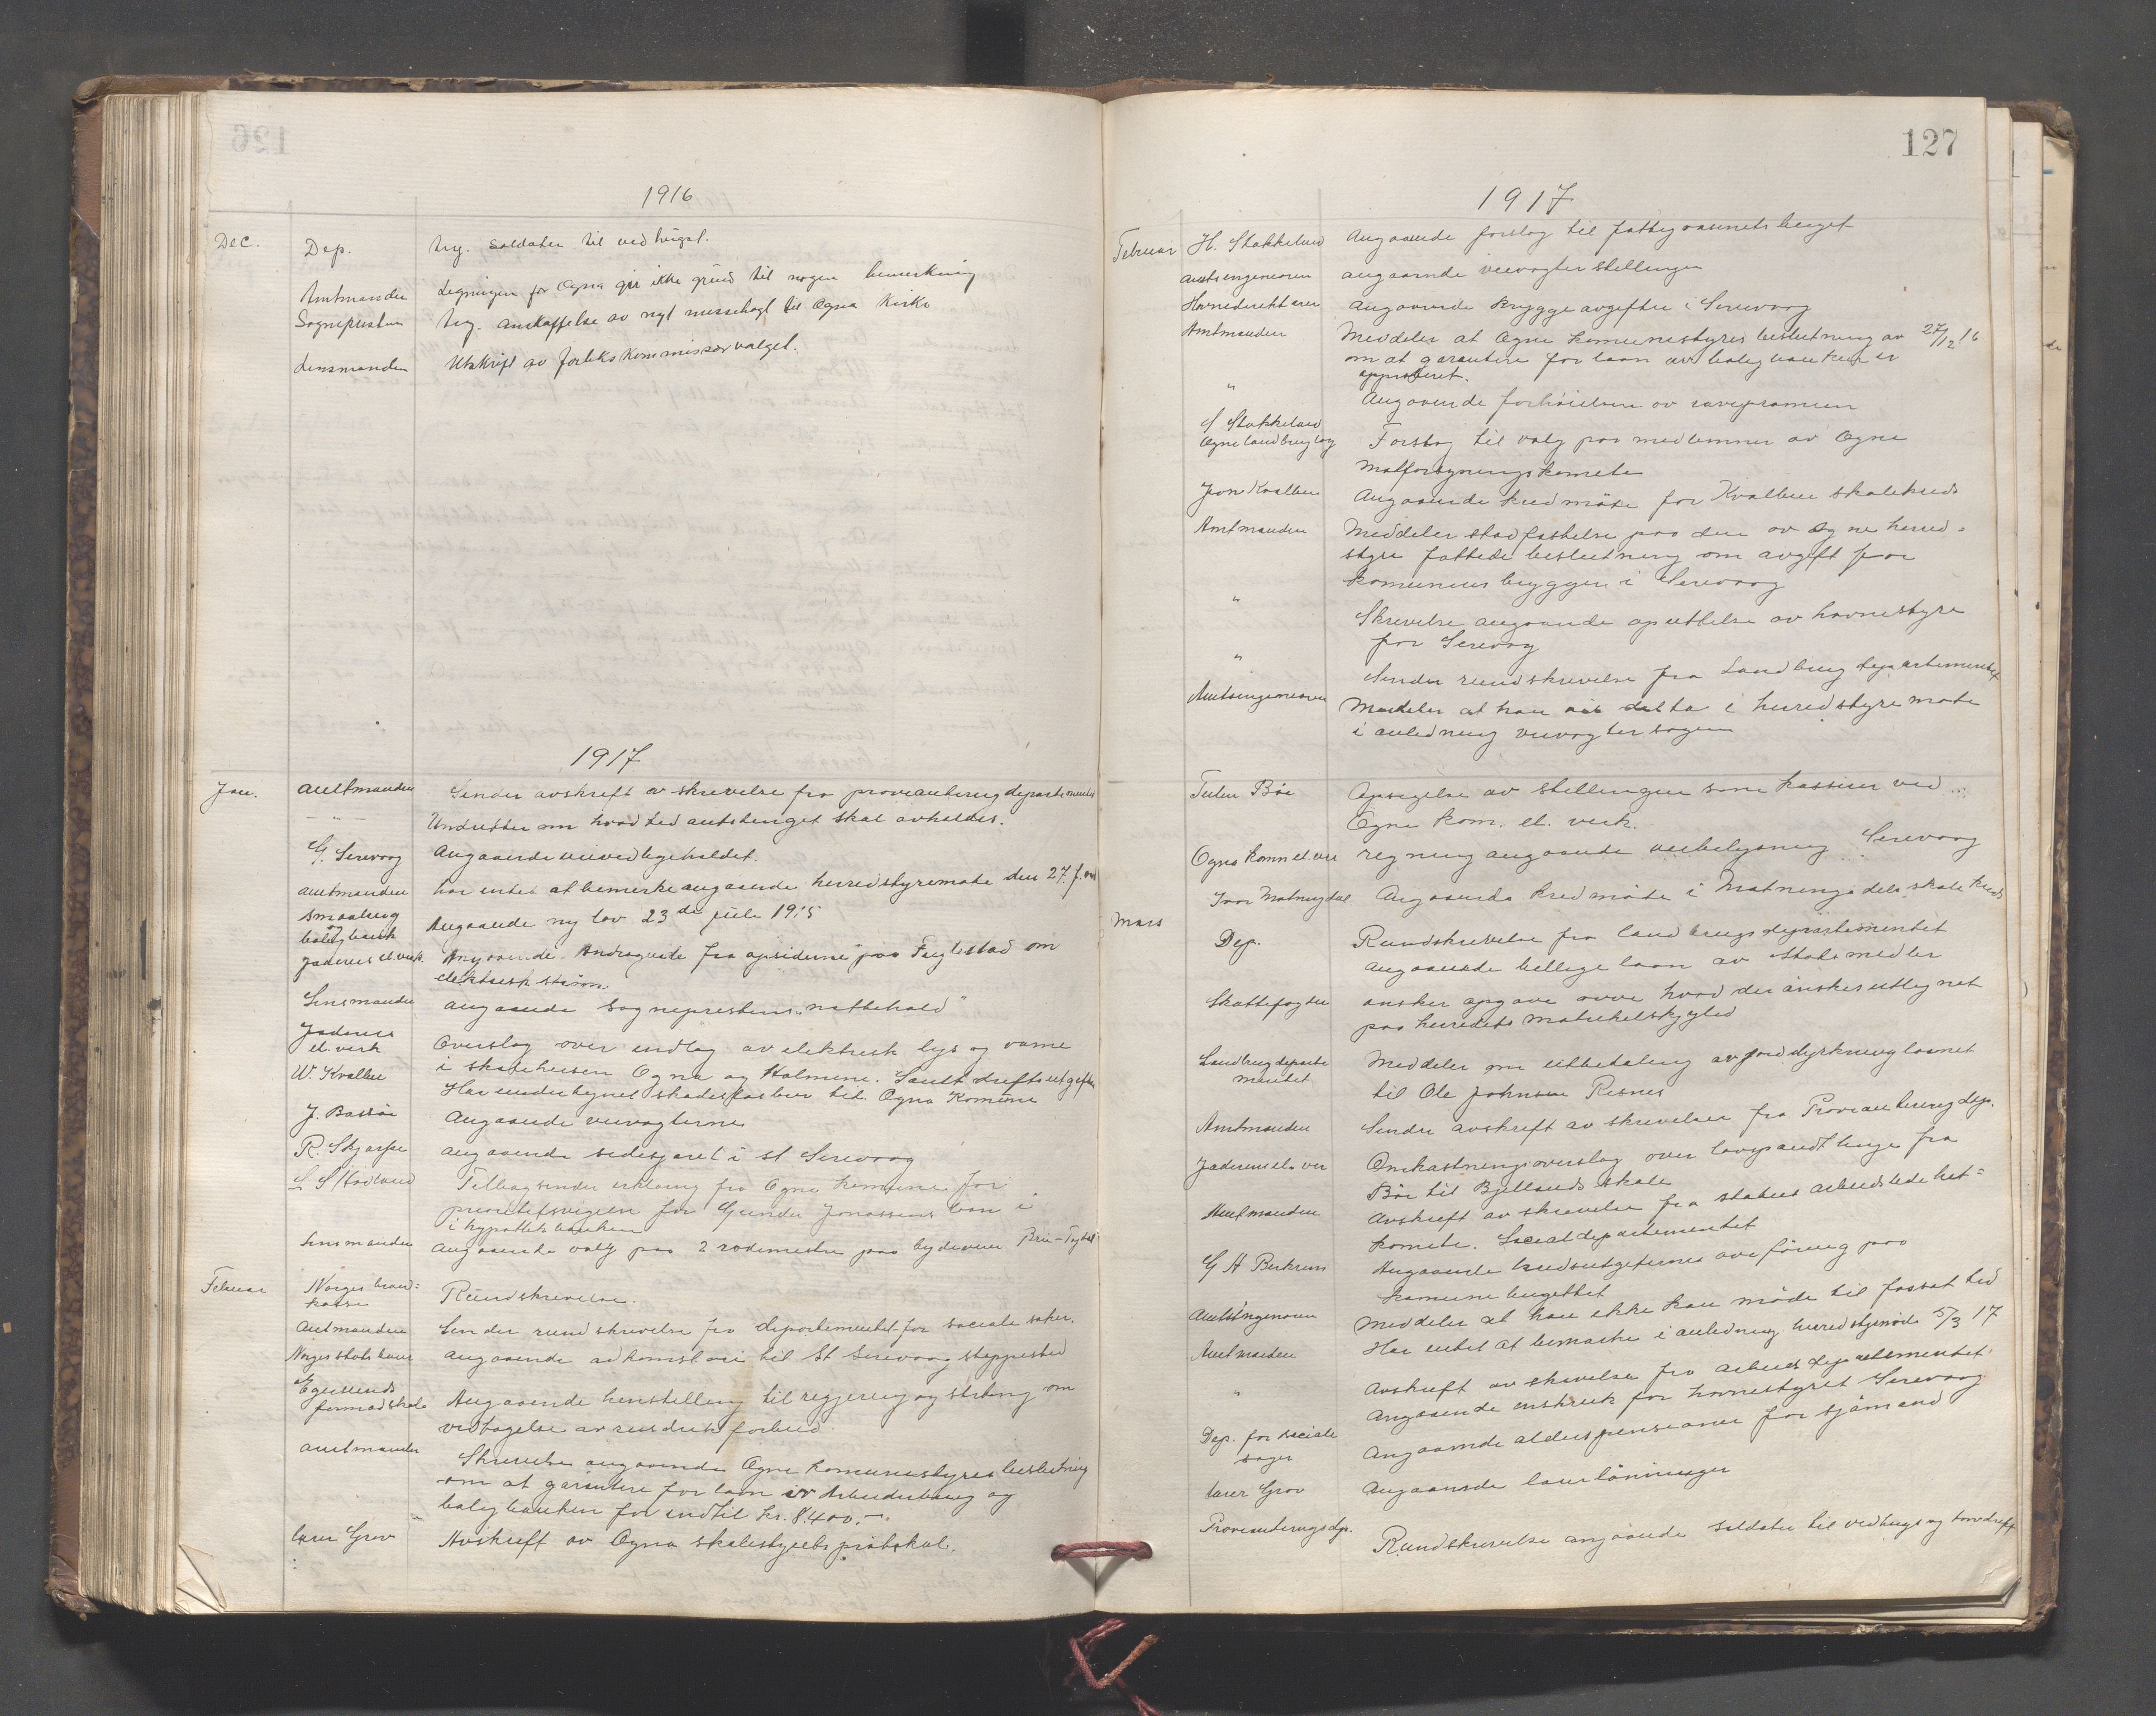 1916
Dec. Dep. Ang. soldater til vedhugst.
Amtmanden Ligningen for Ogna gir ikke grund til nogen bemerkning
Sognepresten Ang. anskaffelse av nyt messehagl til Ogna Kirke
Lensmanden Utskrift av forlikskommissærvalget.
1917
Jan. Amtmanden Sender avskrift av skrivelse fra provianteringsdepartementet
— " — Underretter om hvad tid amtstinget skal avholdes.
G. Sirevaag Angaaende veivedlikeholdet.
Amtmanden har intet at bemerke angaaende herredstyremøte den 27. f. md
Smaabrug og boligbank Angaaende ny lov 23de juli 1915
Jæderens el. verk. Angaaende Andragende fra opsidderne paa Fuglestad om
elektrisk strøm.
Lensmanden angaaende sogneprestens "nattehold"
Jæderens el. verk Overslag over indlæg av elektrisk lys og varme
i skolehusen Ogna og Holmene. Samt driftsutgifter
W. Kvalbein Har undertegnet skadesløsbrev til Ogna Komune
J. Bassøe Angaaende veivogterne
R. Skjæpe angaaende i st Sirevaag
L. S. Stadland Tilbagsender erklæring fra Ogna komune for
prioritetsvigelse for Gunder Jonassens laan i
i hypotekbanken
Lensmanden angaaende valg paa 2 rodemestre paa bydeveien Brue-
Februar Norges brandkasse Rundskrivelse.
Amtmanden Sender rundskrivelse fra departementet for sociale saker.
Norges statsbaner angaaende adkomstvei til St Sirevaag stoppested
Egersunds formandskab Angaaende henstilling til regjering og storting om
vedtagelse av rusdriksforbud.
Amtmanden Skrivelse angaaende Ogna komunestyres beslutning
om at garantere for laan av Arbeiderbrug og
boligbanken for indtil kr. 8.400.-
lærer Grov Avskrift av Ogna skolestyrets protokol.
127
1917
Februar H. Stokkeland Angaaende forslag til fattigvæsenets budget
Amtsingeniøren angaaende veivogterstillingen
Havnedirektøren Angaaende bryggeavgiften i Sirevaag
Amtmanden Meddeler at Ogna komunestyres beslutning av 27/12 16
om at garantere for laan av boligbanken er
approberet.
" Angaaende forhøielsen av rævepræmien
S Stokkeland Ogna landbruglag Forslag til valg paa medlemmer av Ogna
matforsyningskomite
Jon Kvalbein Angaaende kredsmøte for Kvalbein skolekreds
Amtmanden Meddeler stadfæstelse paa den av Ogna herred=
styre fattede beslutning om avgift for
komunens bryggen i Sirevaag
" Skrivelse angaaende oprettelse av havnestyre
for Sirevaag
" Sender rundskrivelse fra Landbrugdepartementet
Amtsingeniøren Meddeler at han vil delta i herredstyremøte
i anledning veivogtersagen
Bøe Opsigelse av stillingen som kasserer ved
Ogna kom. el. verk.
Ogna kom el. ver regning angaaende veibelysning Sirevaag
Ivar Matningsdal Angaaende kredsmøte i Matningsdals skolekreds
Mars Dep. Rundskrivelse fra landbrugsdepartementet
angaaende billige laan av Statsmidler
Skattefogden ønsker opgave over hvad der ønskes utlignet
paa herredets matrikelskyld
Landbrugdepartementet Meddeler om utbetaling av jorddyrkningslaanet
til Ole Johnsen Risnes
Amtmanden Sender avskrift av skrivelsen fra Provianteringsdep.
Jæderens el. ver Omkastningsoverslag over lavspændtlinje fra
Bøe til Bjellands skole
Amtmanden Avskrift av skrivelse fra statens arbeidsledighet=
komite. Socialdepartementet
G A Birkrem Angaaende utgifternes overføring paa
komunebugettet
Amtsingeniøren Meddeler at han ikke kan møde til fastsat tid
Amtmanden Har intet at bemærke i anledning herredstyremøde 5/3 17
" Avskrift av skrivelse fra arbeidsdepartementet
Angaaende instruks for havnestyret Sirevaag
Dep. for sociale sager Angaaende alderspensioner for sjømænd
lærer Grov Angaaende lærerlønninger
Provianteringsdep. Rundskrivelse angaaende soldater til vedhugs og torvdrift